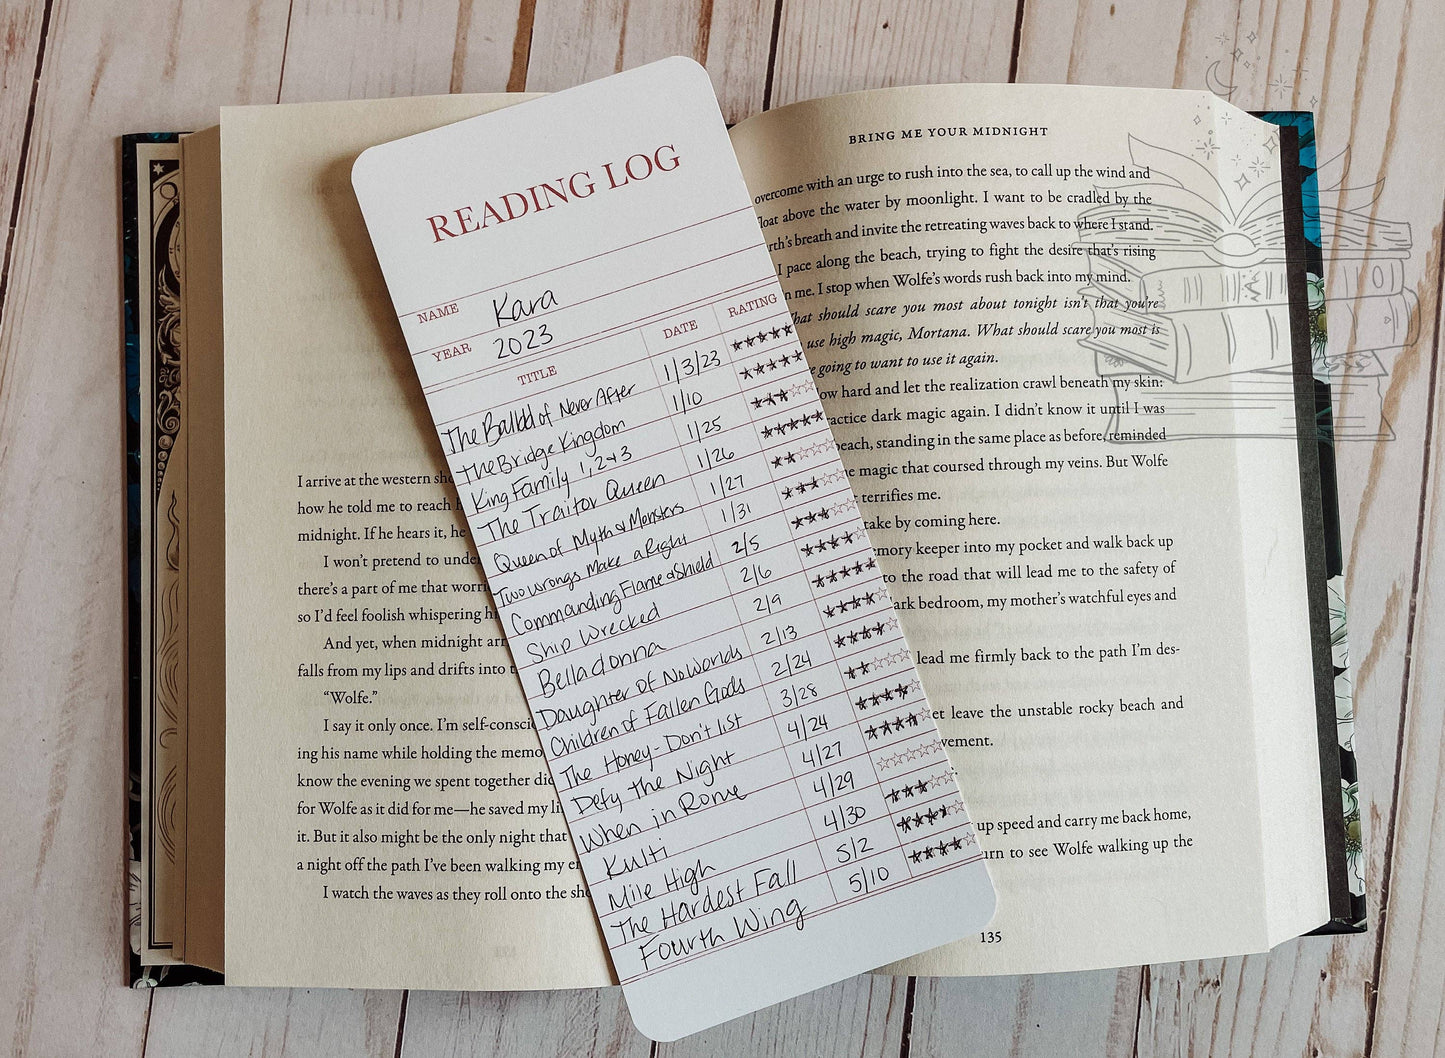 I arrive at the western
how he told me to reach
midnight. If he hears it, he
I won't pretend to
there's a part of me that
so I'd feel foolish whispering
And yet, when midnight
falls from my lips and drifts into
"Wolfe."
I say it only once. I'm
ing his name while holding the
know the evening we spent together
for Wolfe as it did for me—he saved my
it. But it also might be the only night that
a night off the path I've been walking my
I watch the waves as they roll onto the
READING LOG
NAME Kara
YEAR 2023
TITLE DATE RATING
The Ballad of Never After 1/3/23
The Bridge Kingdom 1/10
King Family 1, 2 + 3 1/25
The Traitor Queen 1/26
Queen of Myth & Monsters 1/27
Two wrongs make a Right 1/31
Commanding Flame & Shield 2/5
Ship Wrecked 2/6
Belladonna 2/9
Daughter of No Worlds 2/13
Children of Fallen Gods 2/24
The Honey-Don't list 3/28
Defy the Night 4/24
When in Rome 4/27
Kulti 4/29
Mile High 4/30
The Hardest Fall 5/2
Fourth Wing 5/10
BRING ME YOUR MIDNIGHT
overcome with an urge to rush into the sea, to call up the wind and
float above the water by moonlight. I want to be cradled by the
breath and invite the retreating waves back to where I stand.
I pace along the beach, trying to fight the desire that's rising
me. I stop when Wolfe's words rush back into my mind.
should scare you most about tonight isn't that you're
use high magic, Mortana. What should scare you most is
going to want to use it again.
hard and let the realization crawl beneath my skin:
dark magic again. I didn't know it until I was
standing in the same place as before, reminded
magic that coursed through my veins. But Wolfe
terrifies me.
take by coming here.
keeper into my pocket and walk back up
to the road that will lead me to the safety of
bedroom, my mother's watchful eyes and
lead me firmly back to the path I'm des-
leave the unstable rocky beach and
up speed and carry me back home,
to see Wolfe walking up the
135